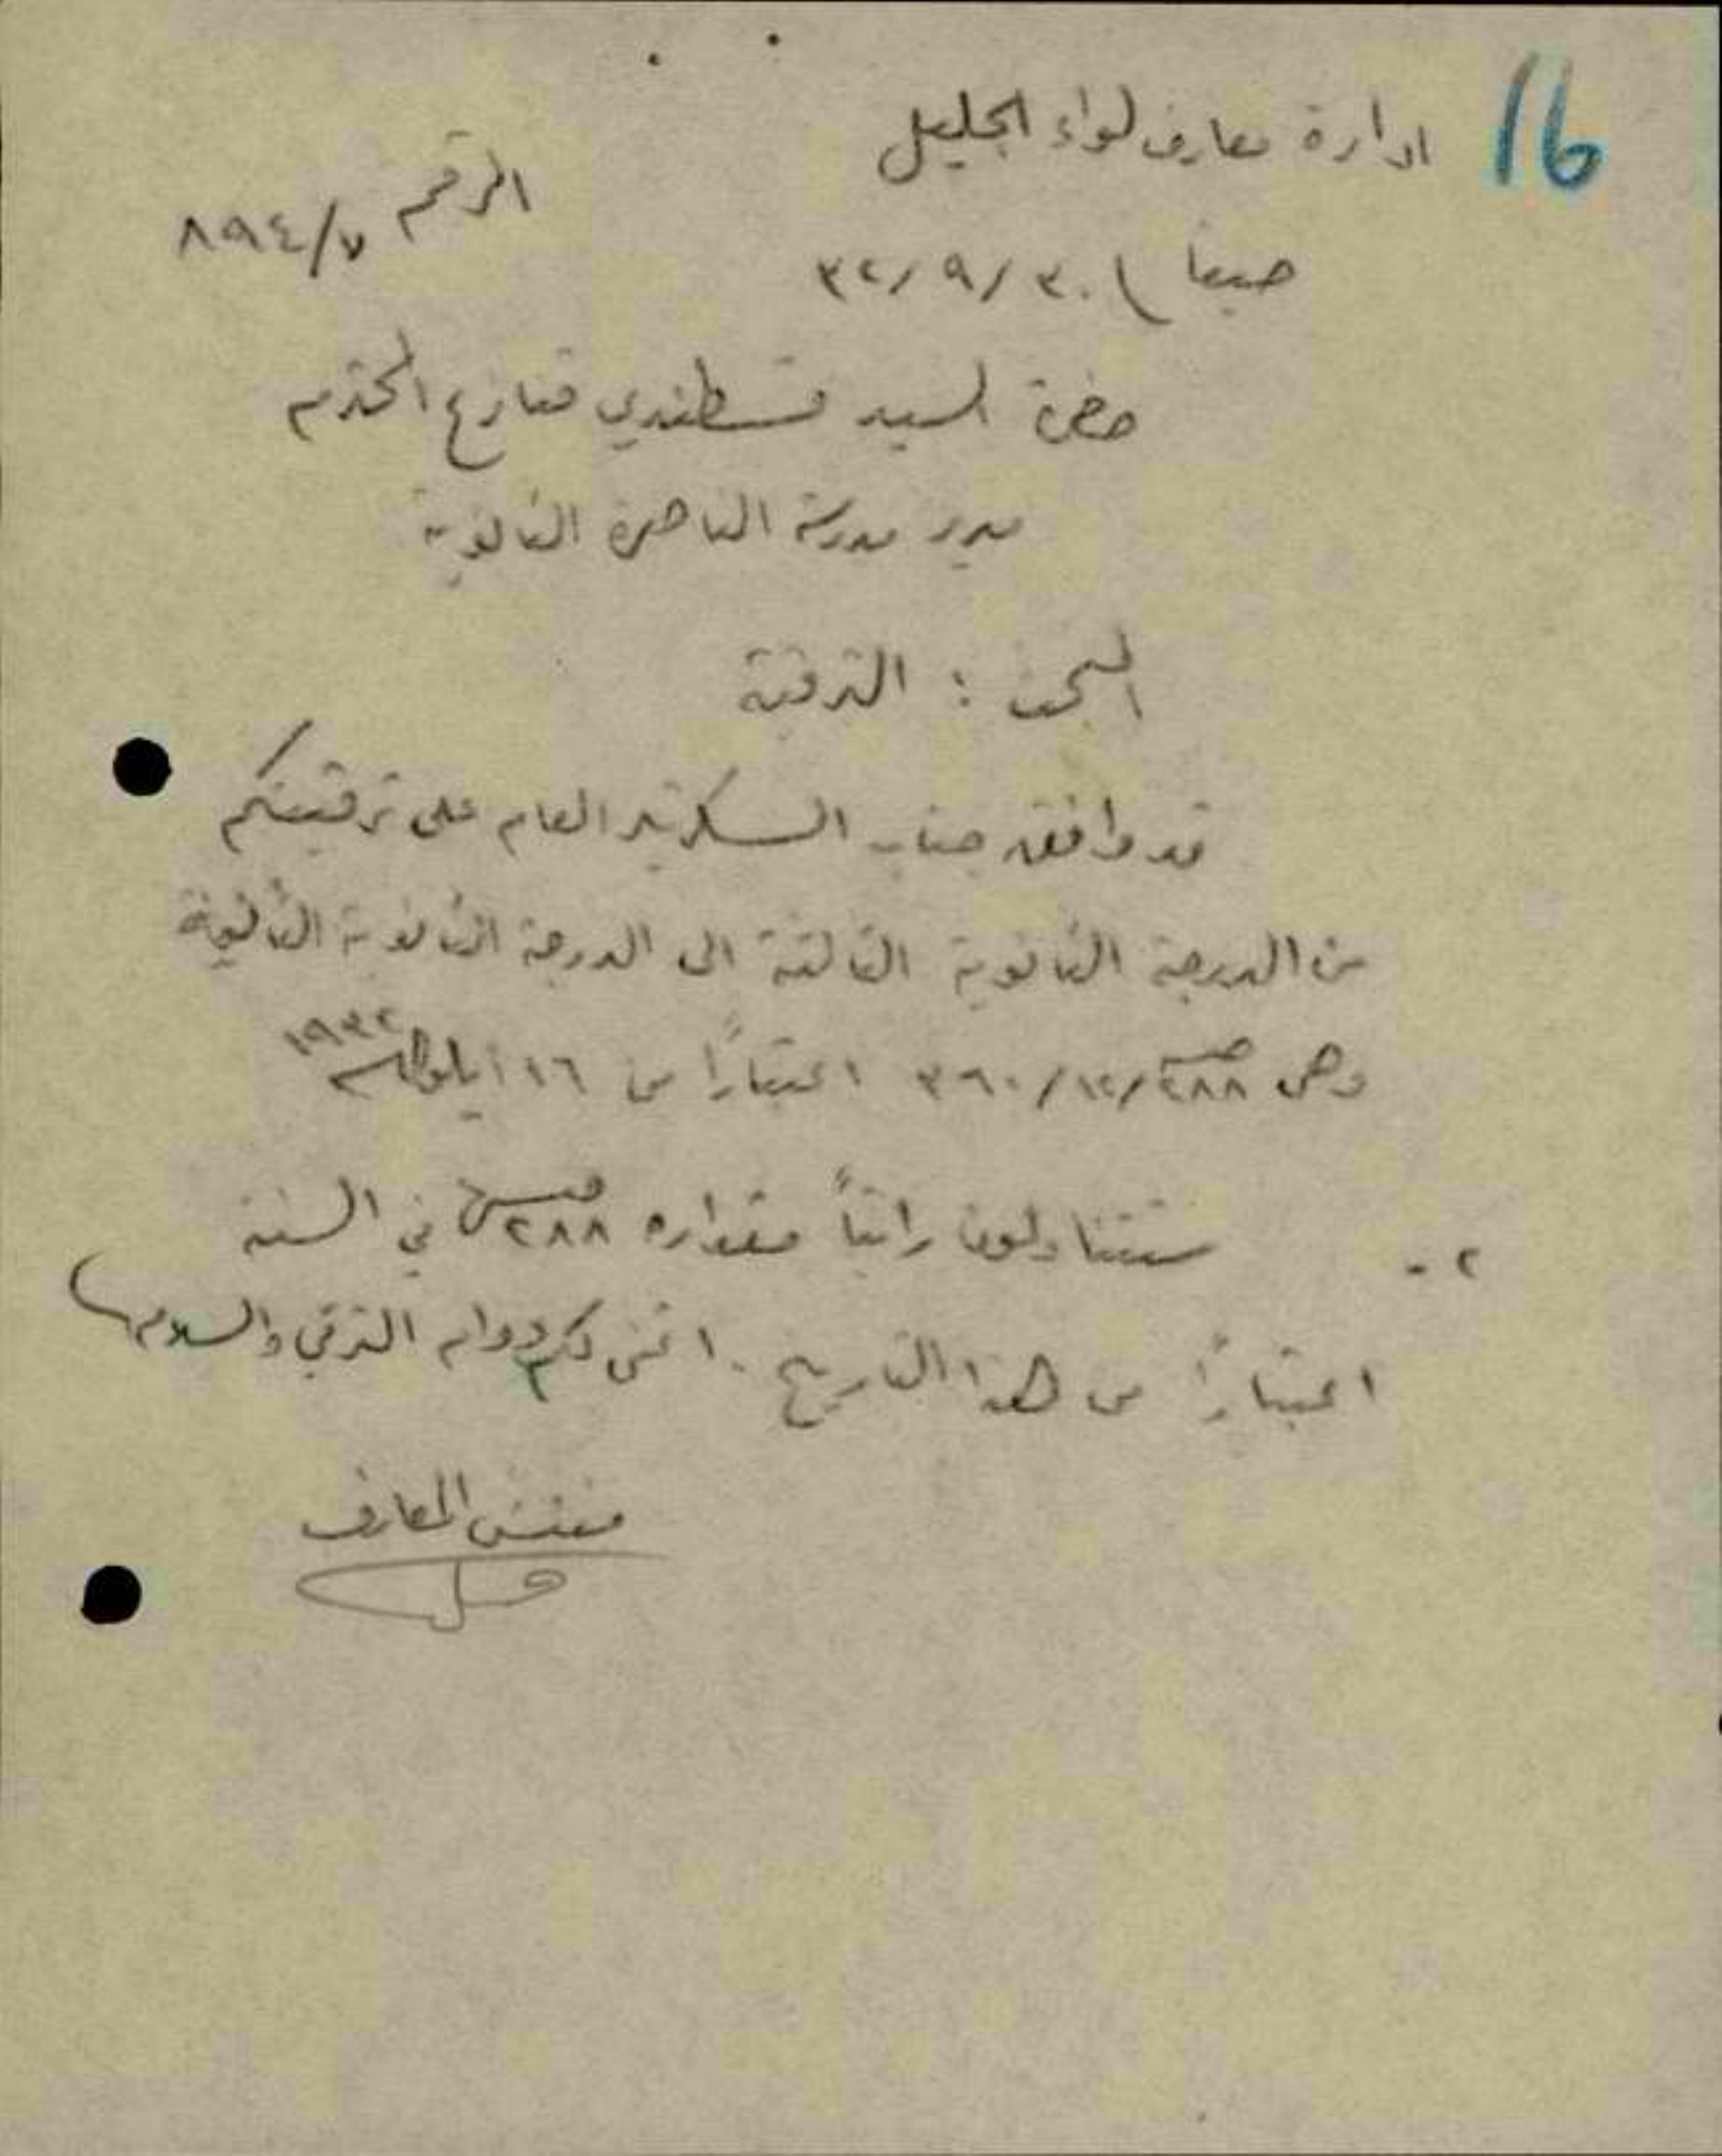 16
ادارة معارف لواء الجليل
الرقم ٧/٨٩٤
حيفا ٣٠/٩/٣٢
حضرة السيد قسطندي قنازع المحترم
مدير مدرسة الناصرة الثانوية
البحث : الترقية
قد وافق جناب السكرتير العام على ترقيتكم
من الدرجة الثانوية الثالثة الى الدرجة الثانوية الثانية
وهي ٢٨٨/١٢/٣٦٠ اعتبارًا من ١٦ ايلول ١٩٣٢
٢- ستتناولون راتباً مقداره ٢٨٨ في السنة
اعتبارًا من هذا التاريخ . اتمنى لكم دوام الترقي والسلام
مفتش المعارف